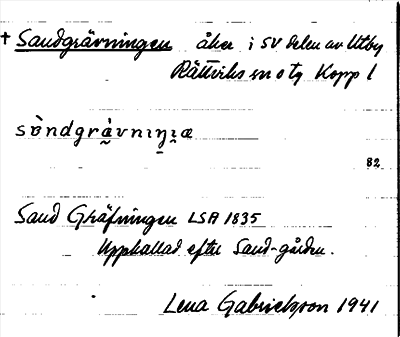 † Sandgrävningen åker i SV delen av Utby
Rättviks sn o tg Kopp l
sɒ̀ndgrä̀vnɩŋɩæ
82
Sand Gräfningen LSA 1835
Upphallad efter Sand-gården.
Lena Gabrielsson 1941